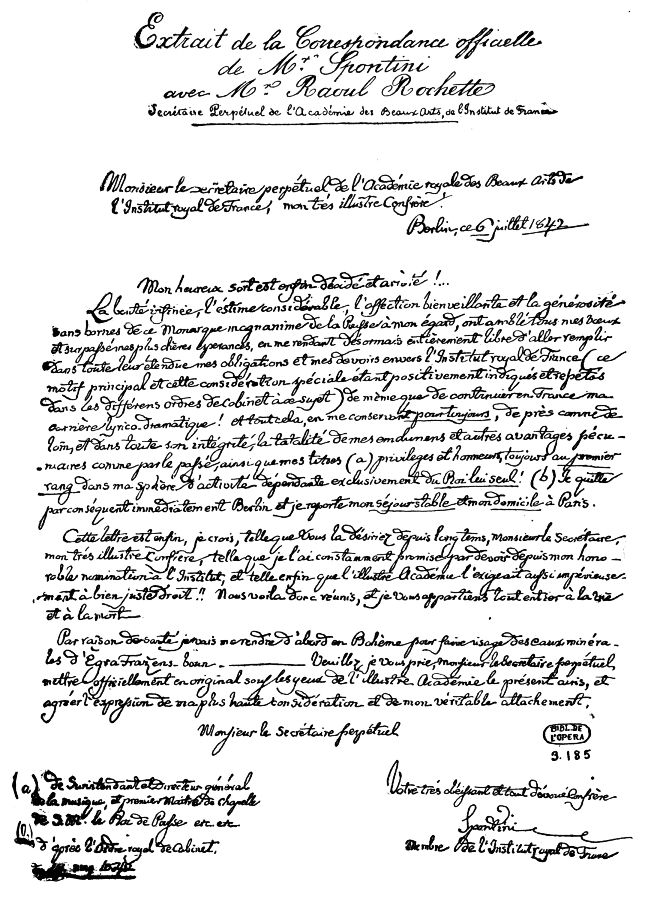 Extrait de la Correspondance officielle
de M.r Spontini
avec M.r Raoul Rochette
Secrétaire Perpétuel de l'Académie des Beaux Arts, de l'Institut de France
Monsieur le secrétaire perpétuel de l'Académie royale des Beaux Arts de
l'Institut royal de France, mon très illustre Confrère!
Berlin, ce 6 juillet 1842
Mon heureux sort est enfin décidé et arrivé!...
La bonté infinie, l'estime considérable, l'affection bienveillante et la générosité
sans bornes de ce Monarque magnanime de la Prusse à mon égard, ont comblé tous mes vœux
et surpassé mes plus chères espérances, en me rendant désormais entièrement libre d'aller remplir
dans toute leur étendue mes obligations et mes devoirs envers l'Institut royal de France (ce
motif principal et cette considération spéciale étant positivement indiqués et répétés
dans les différens ordres de Cabinet à ce sujet) de même que de continuer en France ma
carrière lyrico-dramatique! et tout cela, en me conservant pour toujours, de près comme de
loin, et dans toute son intégrité, la totalité de mes émolumens et autres avantages pécu-
niaires comme par le passé, ainsi que mes titres (a) privileges et honneurs, toujours au premier
rang dans ma sphère d'activité dépendante exclusivement du Roi lui seul! (b) Je quitte
par conséquent immédiatement Berlin et je reporte mon séjour stable et mon domicile à Paris.
Cette lettre est enfin, je crois, telle que Vous la désiriez depuis longtems, Monsieur le Secrétaire,
mon très illustre Confrère, telle que je l'ai constamment promise par devoir depuis mon hono-
rable nomination à l'Institut, et telle enfin que l'illustre Académie l'exigeait aussi impérieuse-
ment à bien juste droit!! Nous voilà donc réunis, et je vous appartiens tout entier à la vie
et à la mort
Par raison de santé je vais me rendre d'abord en Bohème pour faire usage des eaux minéra-
les d'Egra Franzens-boun. Veuillez, je vous prie, Monsieur le Secrétaire perpétuel,
mettre officiellement en original sous les yeux de l'illustre Académie le présent avis, et
agréer l'expression de ma plus haute considération et de mon véritable attachement.
Monsieur le Secrétaire perpétuel
BIBL. DE
L'OPERA
9.185
(a) de Surintendant et Directeur général
de la musique, et premier Maître de Chapelle
de S. M. le Roi de Prusse etc etc
(b)
d'après l'Ordre royal de Cabinet.
Votre très obéissant et tout dévoué Confrère
Spontini
Membre de l'Institut royal de France